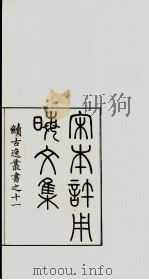 宋本許用
晦文集
續古逸叢書之十一
研狗
mtoou.info